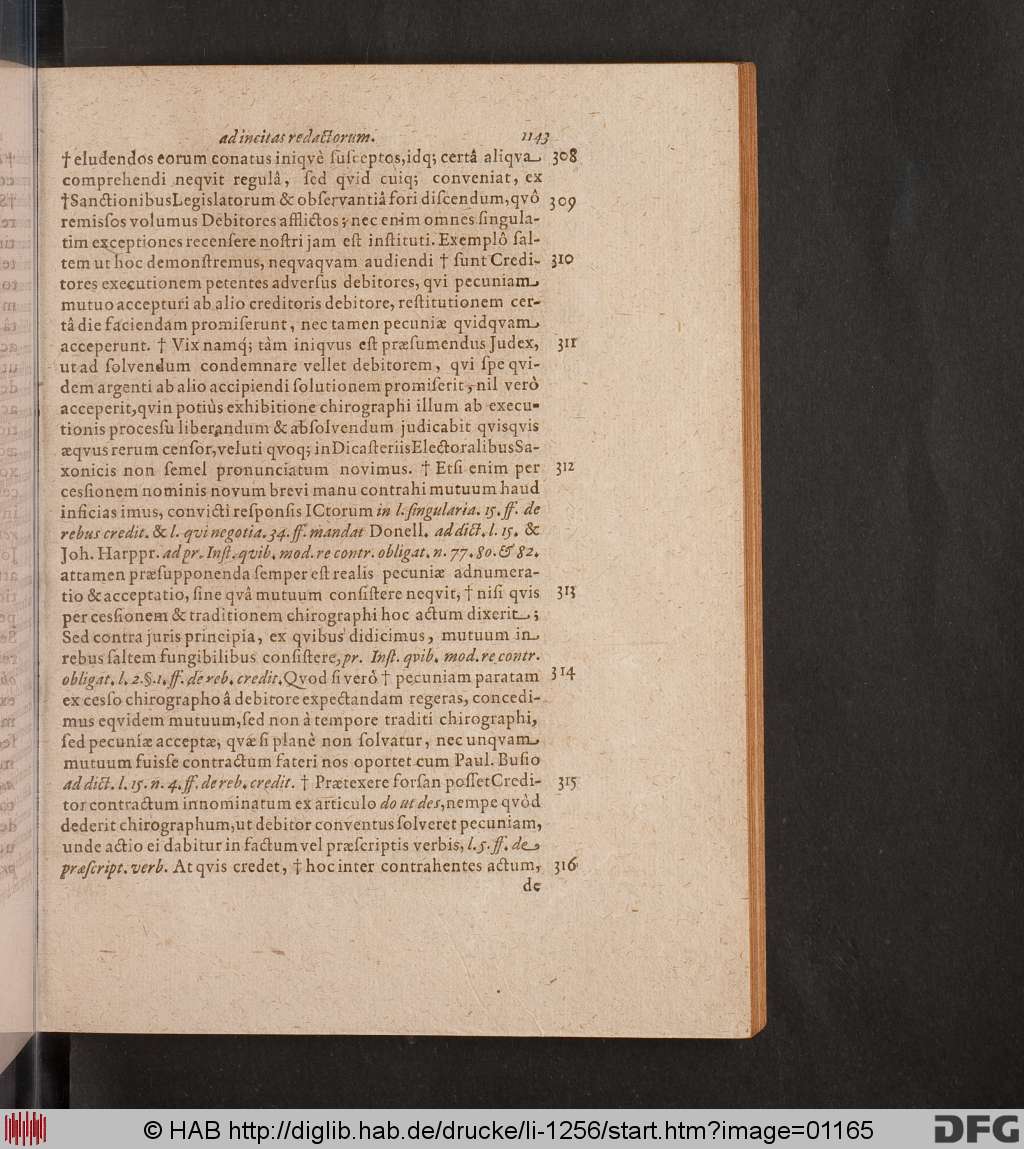 ad incitas redactorum. 1143
† eludendos eorum conatus iniqvè ſuſceptos, idq; certâ aliqva 308
comprehendi neqvit regulâ, ſed qvid cuiq; conveniat, ex
†Sanctionibus Legislatorum & obſervantiâ fori diſcendum, qvô 309
remiſſos volumus Debitores afflictos; nec enim omnes ſingula-
tim exceptiones recenſere noſtri jam eſt inſtituti. Exemplô ſal-
tem ut hoc demonſtremus, neqvaqvam audiendi † ſunt Credi- 310
tores executionem petentes adverſus debitores, qvi pecuniam
mutuo accepturi ab alio creditoris debitore, reſtitutionem cer-
tâ die faciendam promiſerunt, nec tamen pecuniæ qvidqvam
acceperunt. † Vix namq́; tàm iniqvus eſt præſumendus Judex, 311
ut ad ſolvendum condemnare vellet debitorem, qvi ſpe qvi-
dem argenti ab alio accipiendi ſolutionem promiſerit, nil verò
acceperit, qvin potiùs exhibitione chirographi illum ab execu-
tionis proceſſu liberandum & abſolvendum judicabit qvisqvis
æqvus rerum cenſor, veluti qvoq; in Dicaſteriis Electoralibus Sa-
xonicis non ſemel pronunciatum novimus. † Etſi enim per 312
cesſionem nominis novum brevi manu contrahi mutuum haud
inficias imus, convicti reſponſis ICtorum in l. ſingularia. 15. ff. de
rebus credit. & l. qvi negotia. 34. ff. mandat Donell. ad dict. l. 15. &
Joh. Harppr. ad pr. Inſt. qvib. mod. re contr. obligat. n. 77. 80. & 82.
attamen præſupponenda ſemper eſt realis pecuniæ adnumera-
tio & acceptatio, ſine qvâ mutuum conſiſtere neqvit, † niſi qvis 313
per cesſionem & traditionem chirographi hoc actum dixerit;
Sed contra juris principia, ex qvibus didicimus, mutuum in
rebus ſaltem fungibilibus conſiſtere, pr. Inſt. qvib. mod. re contr.
obligat. l. 2. §. 1. ff. de reb. credit. Qvod ſi verò † pecuniam paratam 314
ex cesſo chirographo â debitore expectandam regeras, concedi-
mus eqvidem mutuum, ſed non à tempore traditi chirographi,
ſed pecuniæ acceptæ, qvæ ſi planè non ſolvatur, nec unqvam
mutuum fuisſe contractum fateri nos oportet cum Paul. Buſio
ad dict. l. 15. n. 4. ff. de reb. credit. † Prætexere forſan poſſet Credi- 315
tor contractum innominatum ex articulo do ut des, nempe qvòd
dederit chirographum, ut debitor conventus ſolveret pecuniam,
unde actio ei dabitur in factum vel præſcriptis verbis, l. 5. ff. de
præſcript. verb. At qvis credet, † hoc inter contrahentes actum, 316
de
© HAB http://diglib.hab.de/drucke/li-1256/start.htm?image=01165
DFG